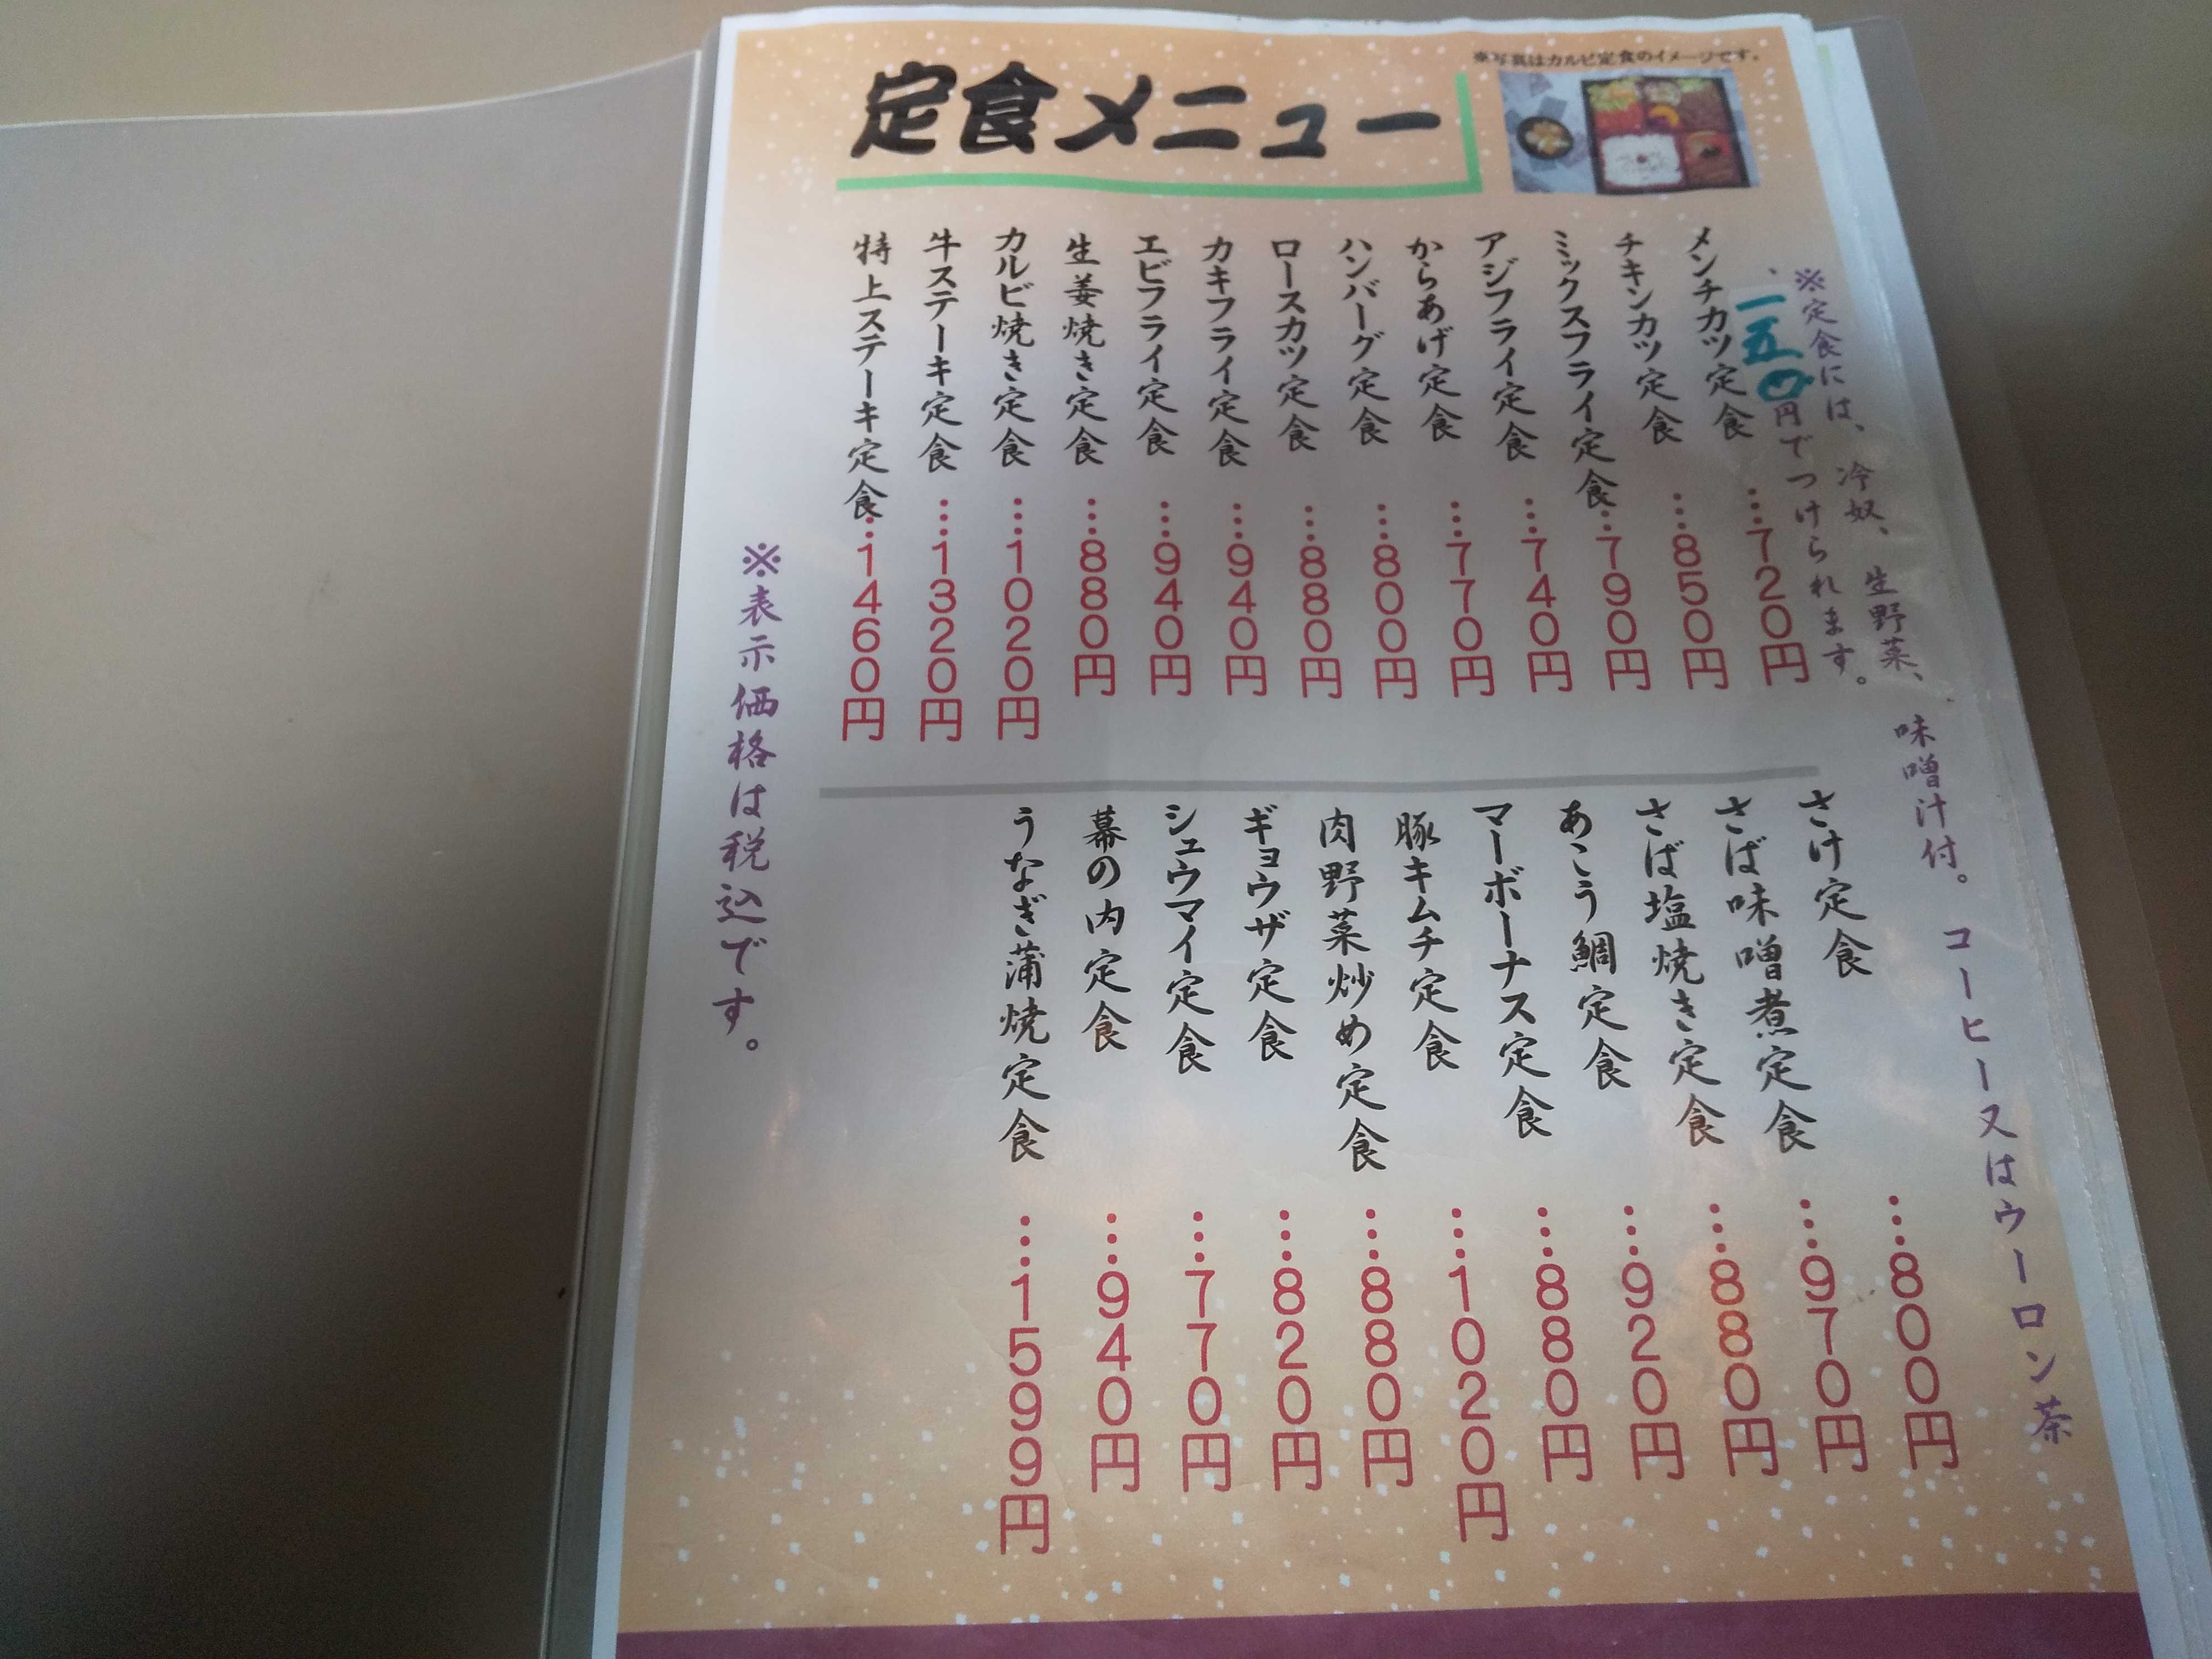 定食メニュー
※写真はカルビ定食のイメージです。
※定食には、冷奴、生野菜、味噌汁付。コーヒー又はウーロン茶
一五〇円でつけられます。
メンチカツ定食…720円
チキンカツ定食…850円
ミックスフライ定食…790円
アジフライ定食…740円
からあげ定食…770円
ハンバーグ定食…800円
ロースカツ定食…880円
カキフライ定食…940円
エビフライ定食…940円
生姜焼き定食…880円
カルビ焼き定食…1020円
牛ステーキ定食…1320円
特上ステーキ定食…1460円
さけ定食…800円
さば味噌煮定食…970円
さば塩焼き定食…880円
あこう鯛定食…920円
マーボーナス定食…880円
豚キムチ定食…1020円
肉野菜炒め定食…880円
ギョウザ定食…820円
シュウマイ定食…770円
幕の内定食…940円
うなぎ蒲焼定食…1599円
※表示価格は税込です。